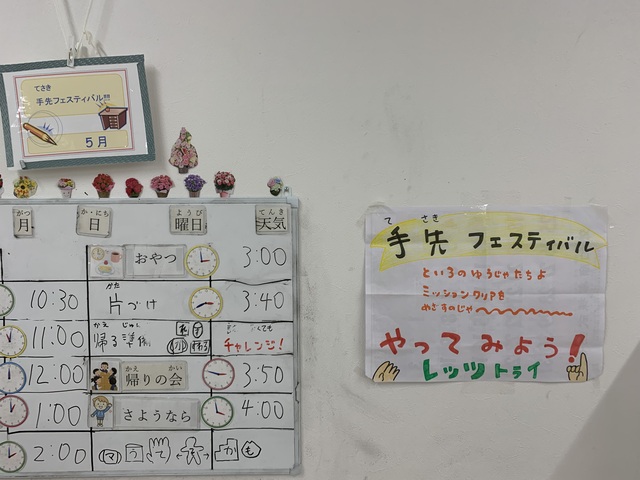 てさき
手先フェスティバル!!!
5月
がつ か・にち ようび てんき
月 日 曜日 天気
おやつ 3:00
10:30 かた
片づけ 3:40
11:00 かえ じゅん
帰る準備 しても
チャレンジ!
12:00 かえ かい
帰りの会 3:50
1:00 さようなら 4:00
2:00
て さき
手先 フェスティバル
といろのゆうしゃたちよ
ミッションクリアを
めざすのじゃ
やってみよう!
レッツトライ